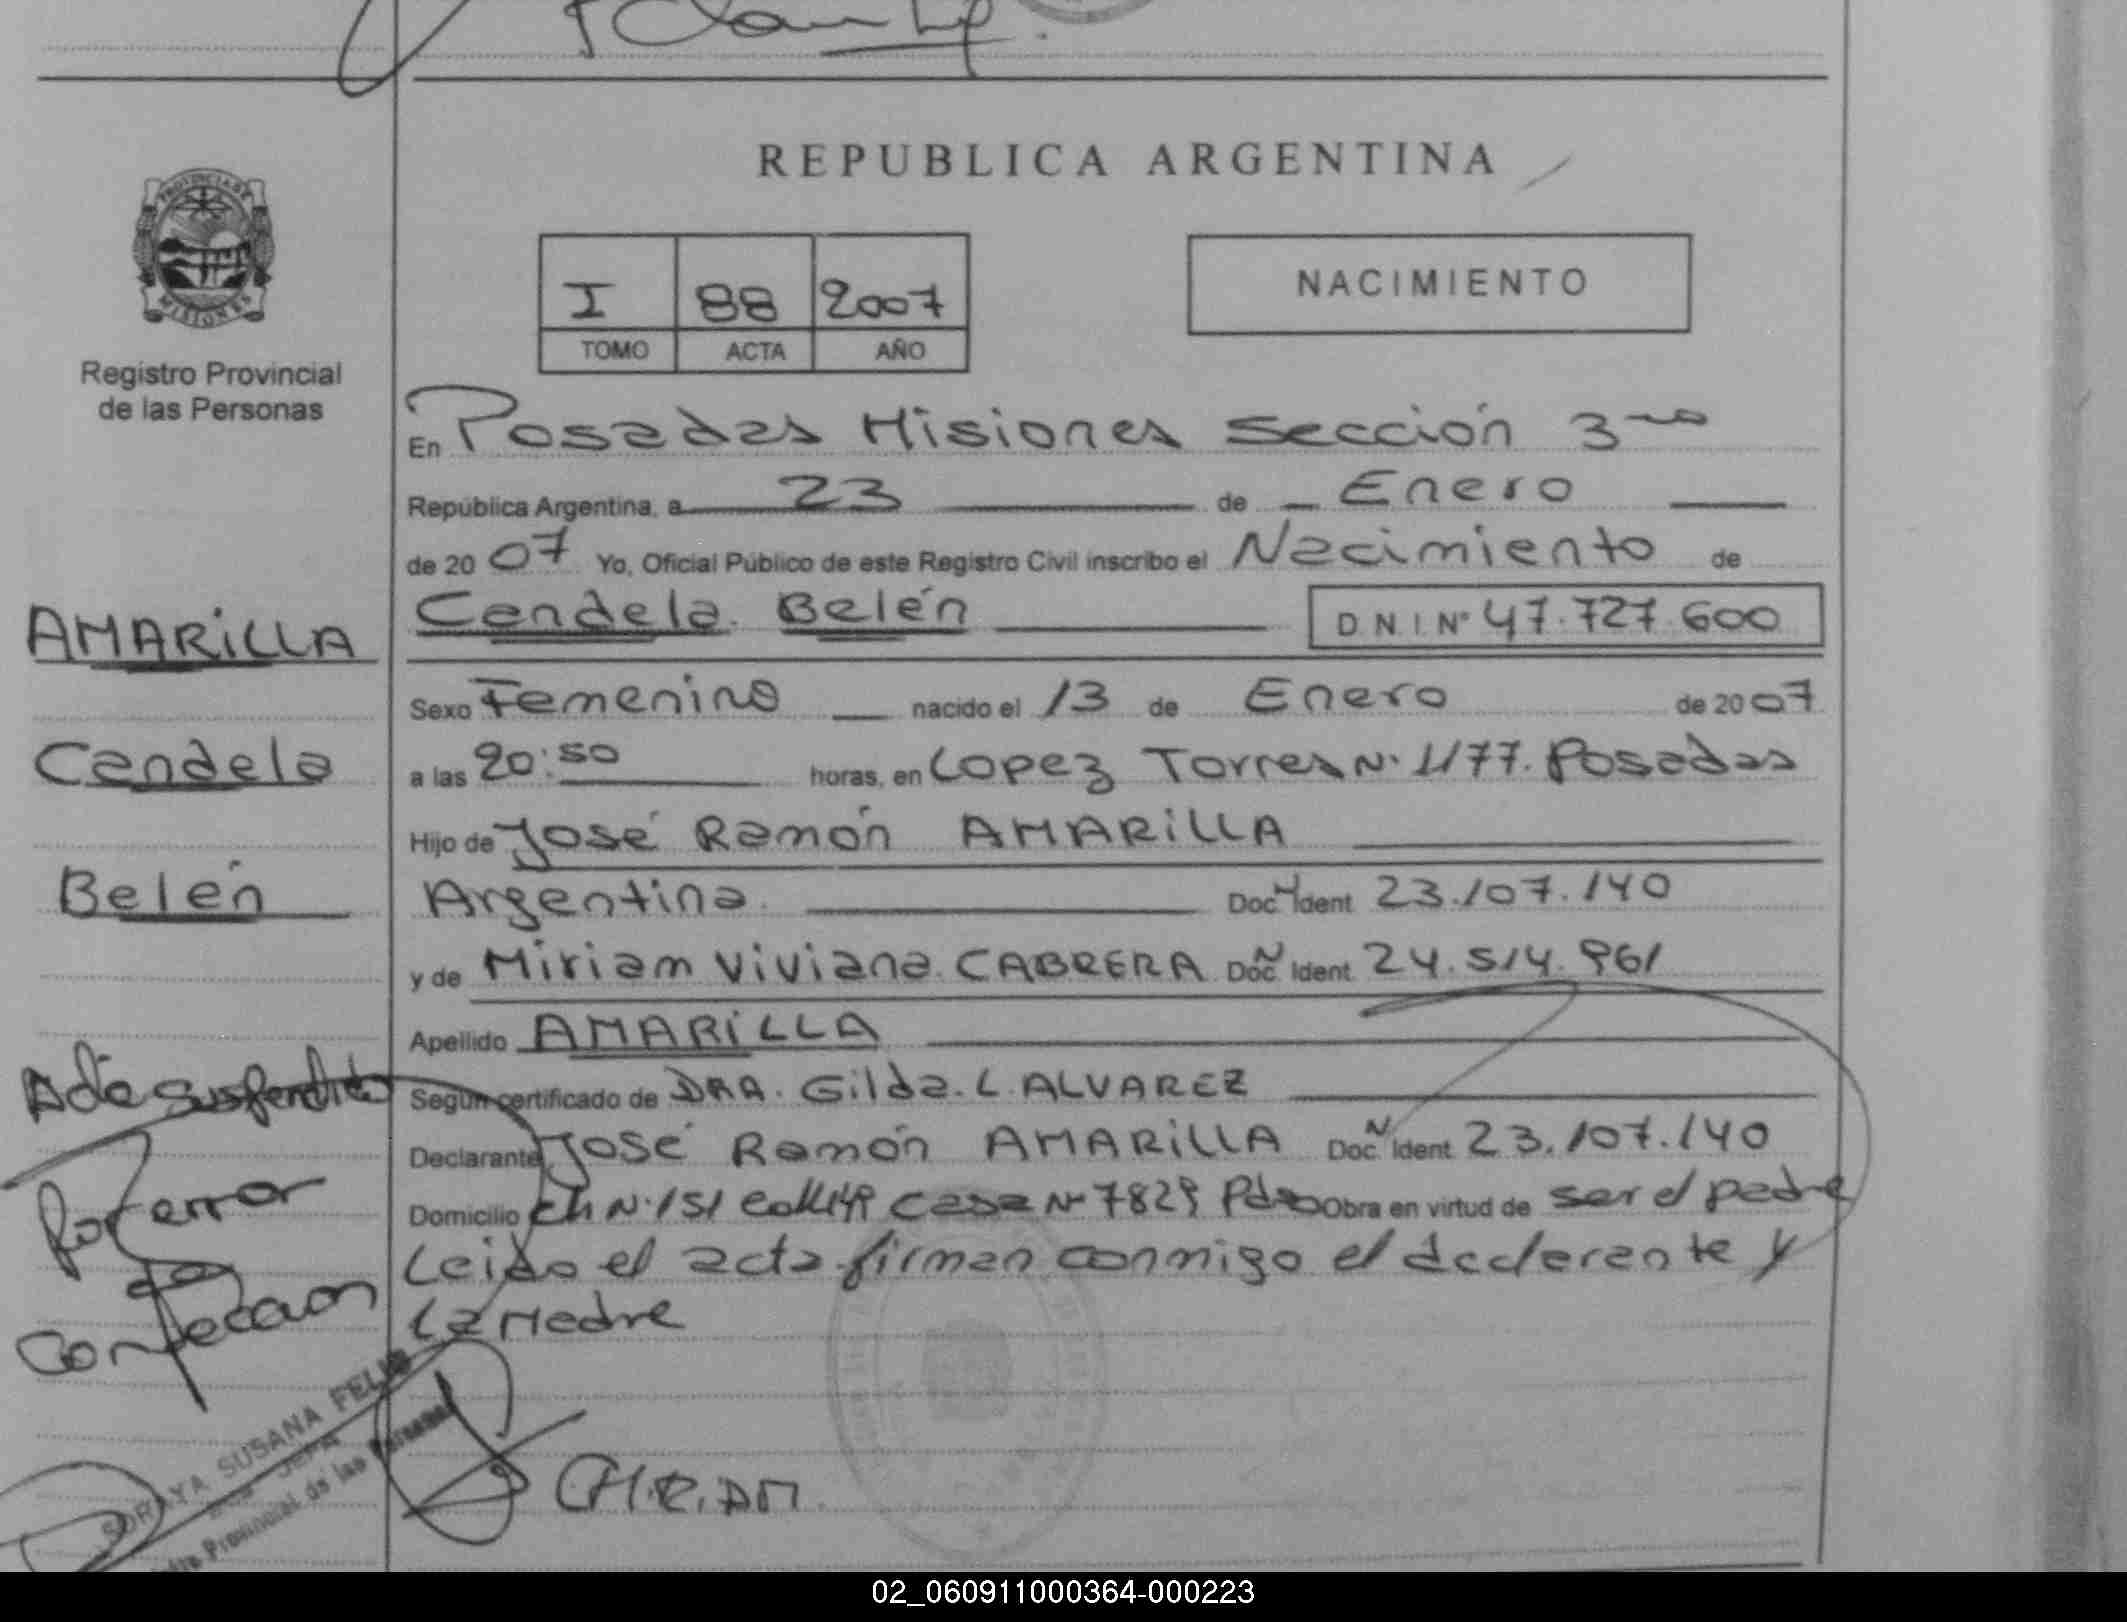 REPUBLICA ARGENTINA
PROVINCIA DE
MISIONES
Registro Provincial
de las Personas
I 88 2007
TOMO ACTA AÑO
NACIMIENTO
En Posadas Misiones Sección 3ra
República Argentina, a 23 de Enero
de 2007 Yo, Oficial Público de este Registro Civil inscribo el Nacimiento de
Candela Belén D.N.I. Nº 47.727.600
AMARILLA
Candela
Belén
Sexo Femenino nacido el 13 de Enero de 2007
a las 20:50 horas, en Lopez Torres Nº 1177. Posadas
Hijo de José Ramón AMARILLA
Argentina Doc Ident 23.107.140
y de Miriam Viviana CABRERA Doc Ident. 24.514.961
Apellido AMARILLA
Según certificado de DRA. Gilda. L. ALVAREZ
Declarante José Ramón AMARILLA Doc Ident 23.107.140
Domicilio Ch Nº 151 Casa Nº 7829 Pdas Obra en virtud de ser el padre
Leido el acta firman conmigo el declarante y
La Madre
Acta suspendida
Por error
de
Confeccion
SORAYA SUSANA FELIP
Provincial de las Personas
02_060911000364-000223